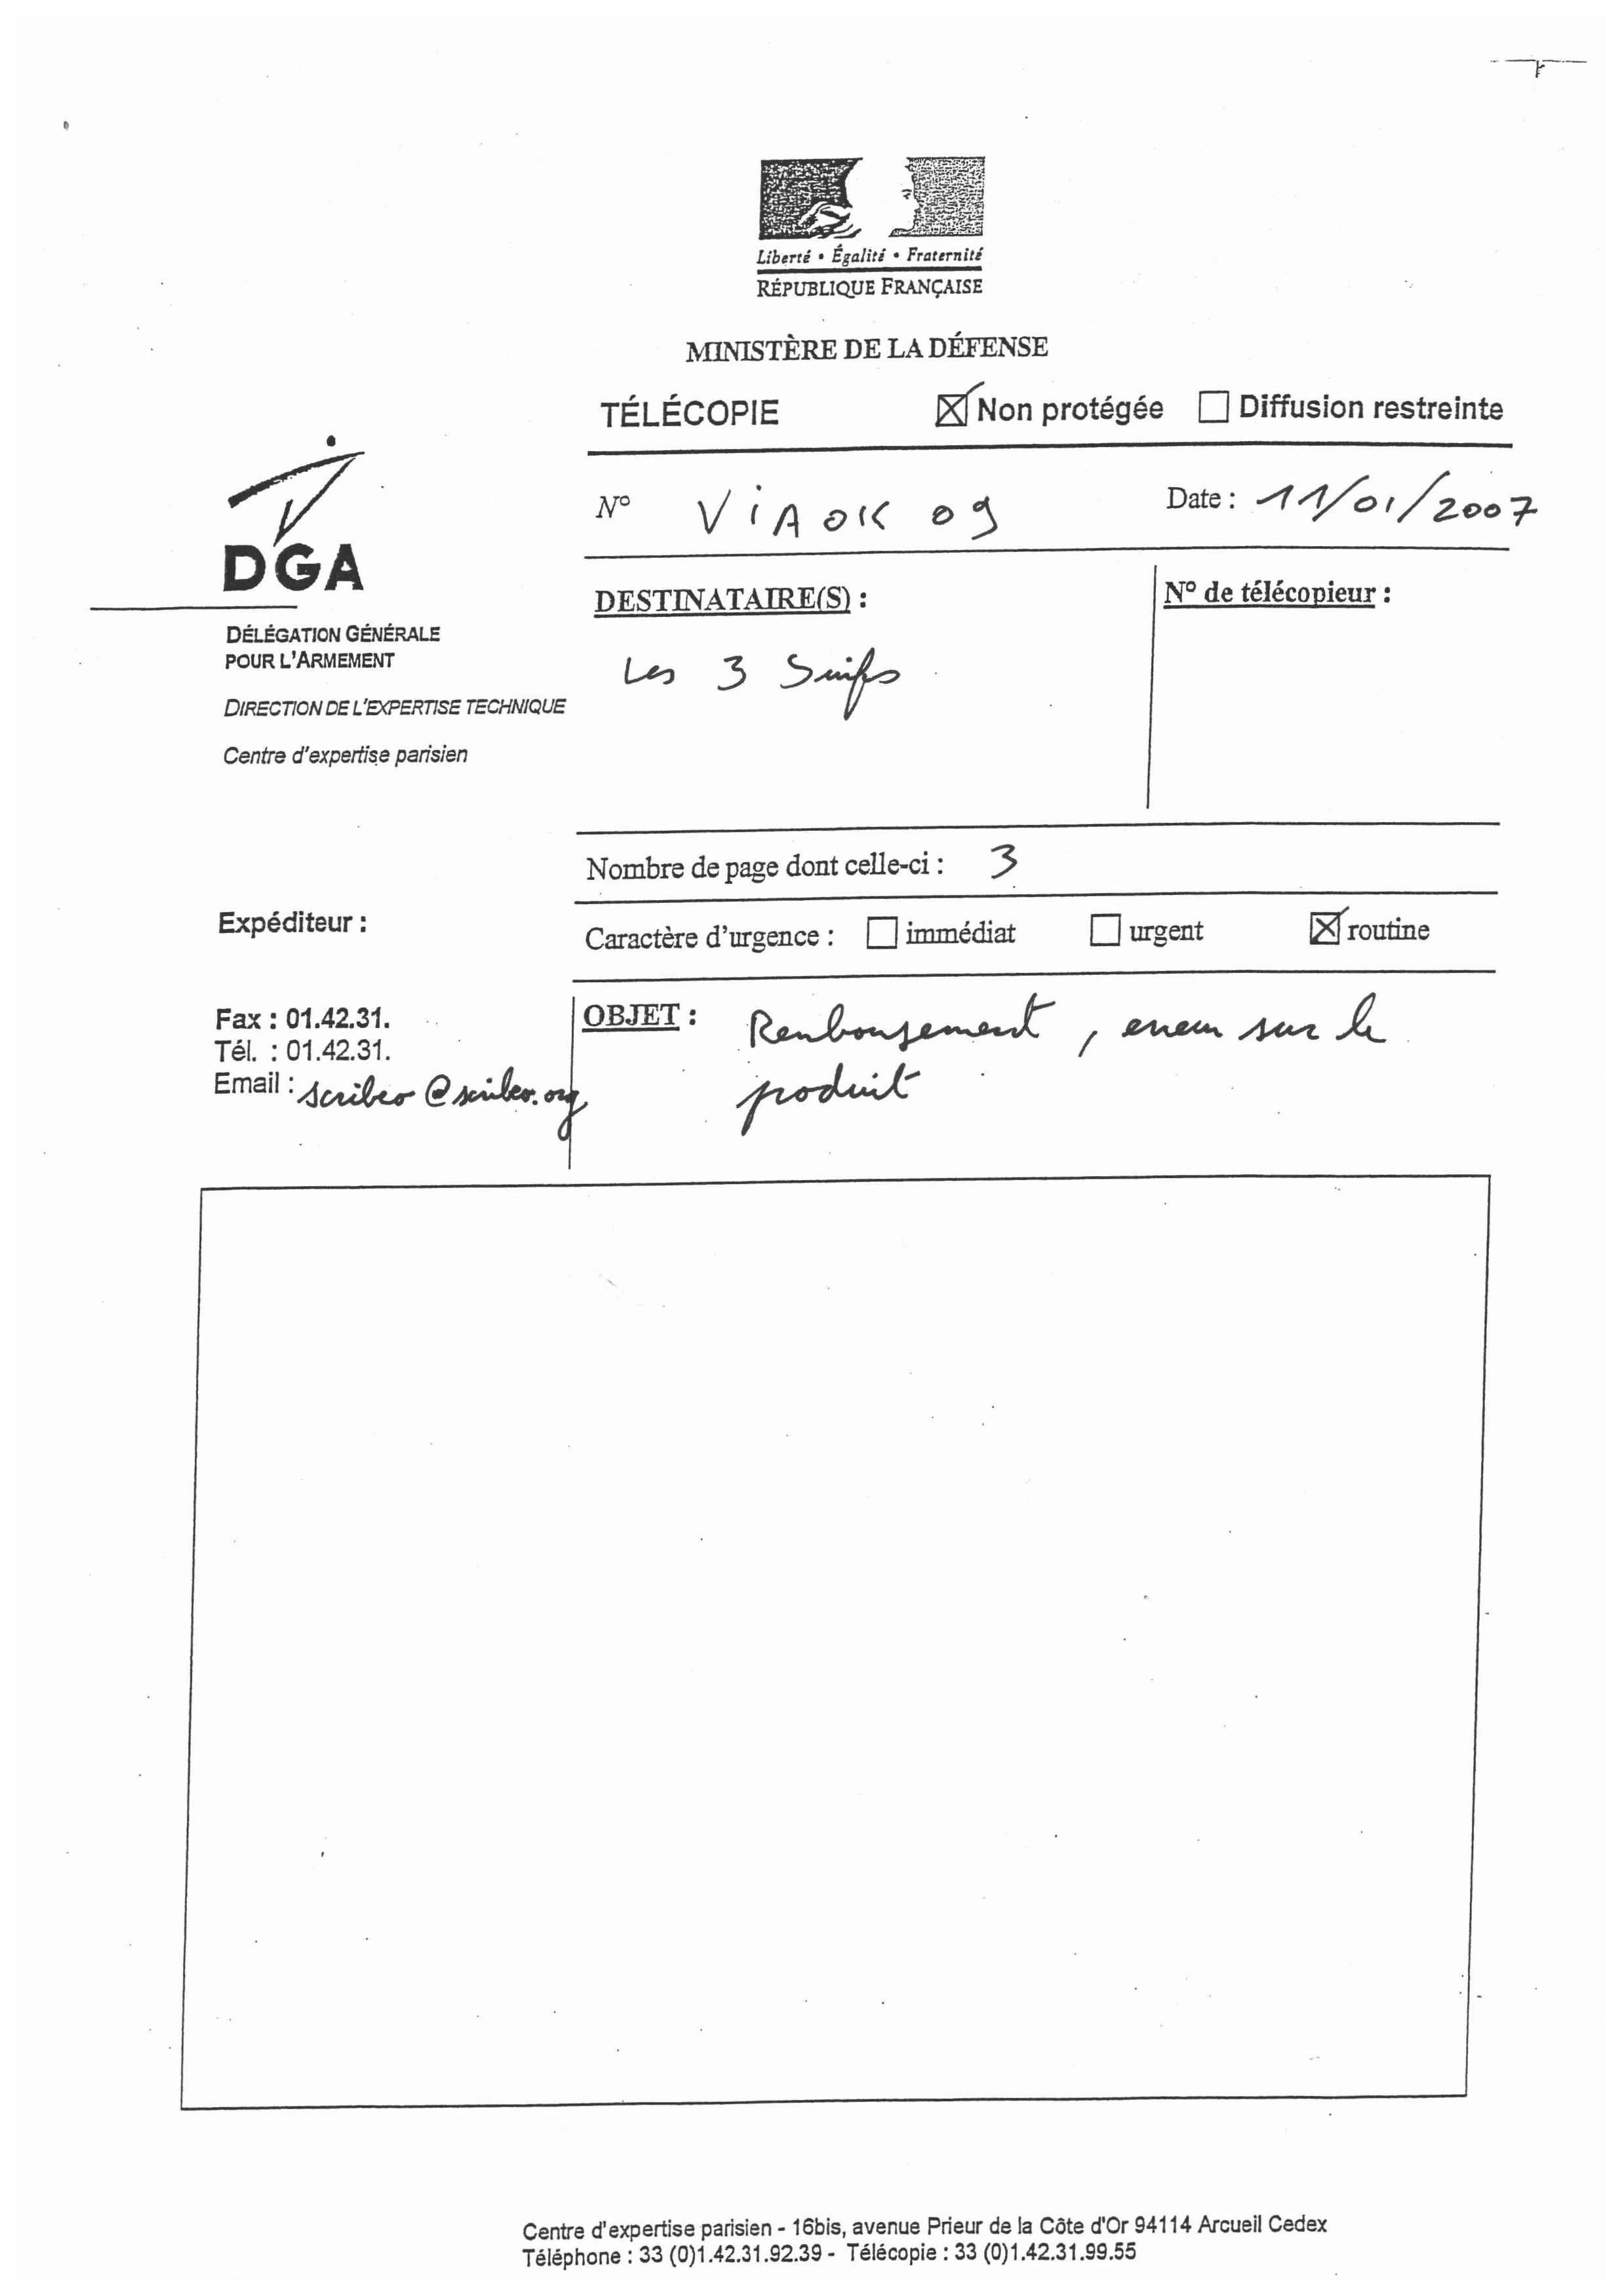 Liberté • Égalité • Fraternité
RÉPUBLIQUE FRANÇAISE
MINISTÈRE DE LA DÉFENSE
TÉLÉCOPIE Non protégée Diffusion restreinte
DGA
N° ViAOK 09 Date : 11/01/2007
DÉLÉGATION GÉNÉRALE
POUR L'ARMEMENT
DIRECTION DE L'EXPERTISE TECHNIQUE
Centre d'expertise parisien
DESTINATAIRE(S) : N° de télécopieur :
Les 3 Suifs
Nombre de page dont celle-ci : 3
Expéditeur :
Caractère d'urgence : immédiat urgent routine
Fax : 01.42.31.
Tél. : 01.42.31.
Email : scribeo@scribeo.org
OBJET : Remboursement, erreur sur le
produit
Centre d'expertise parisien - 16bis, avenue Prieur de la Côte d'Or 94114 Arcueil Cedex
Téléphone : 33 (0)1.42.31.92.39 - Télécopie : 33 (0)1.42.31.99.55